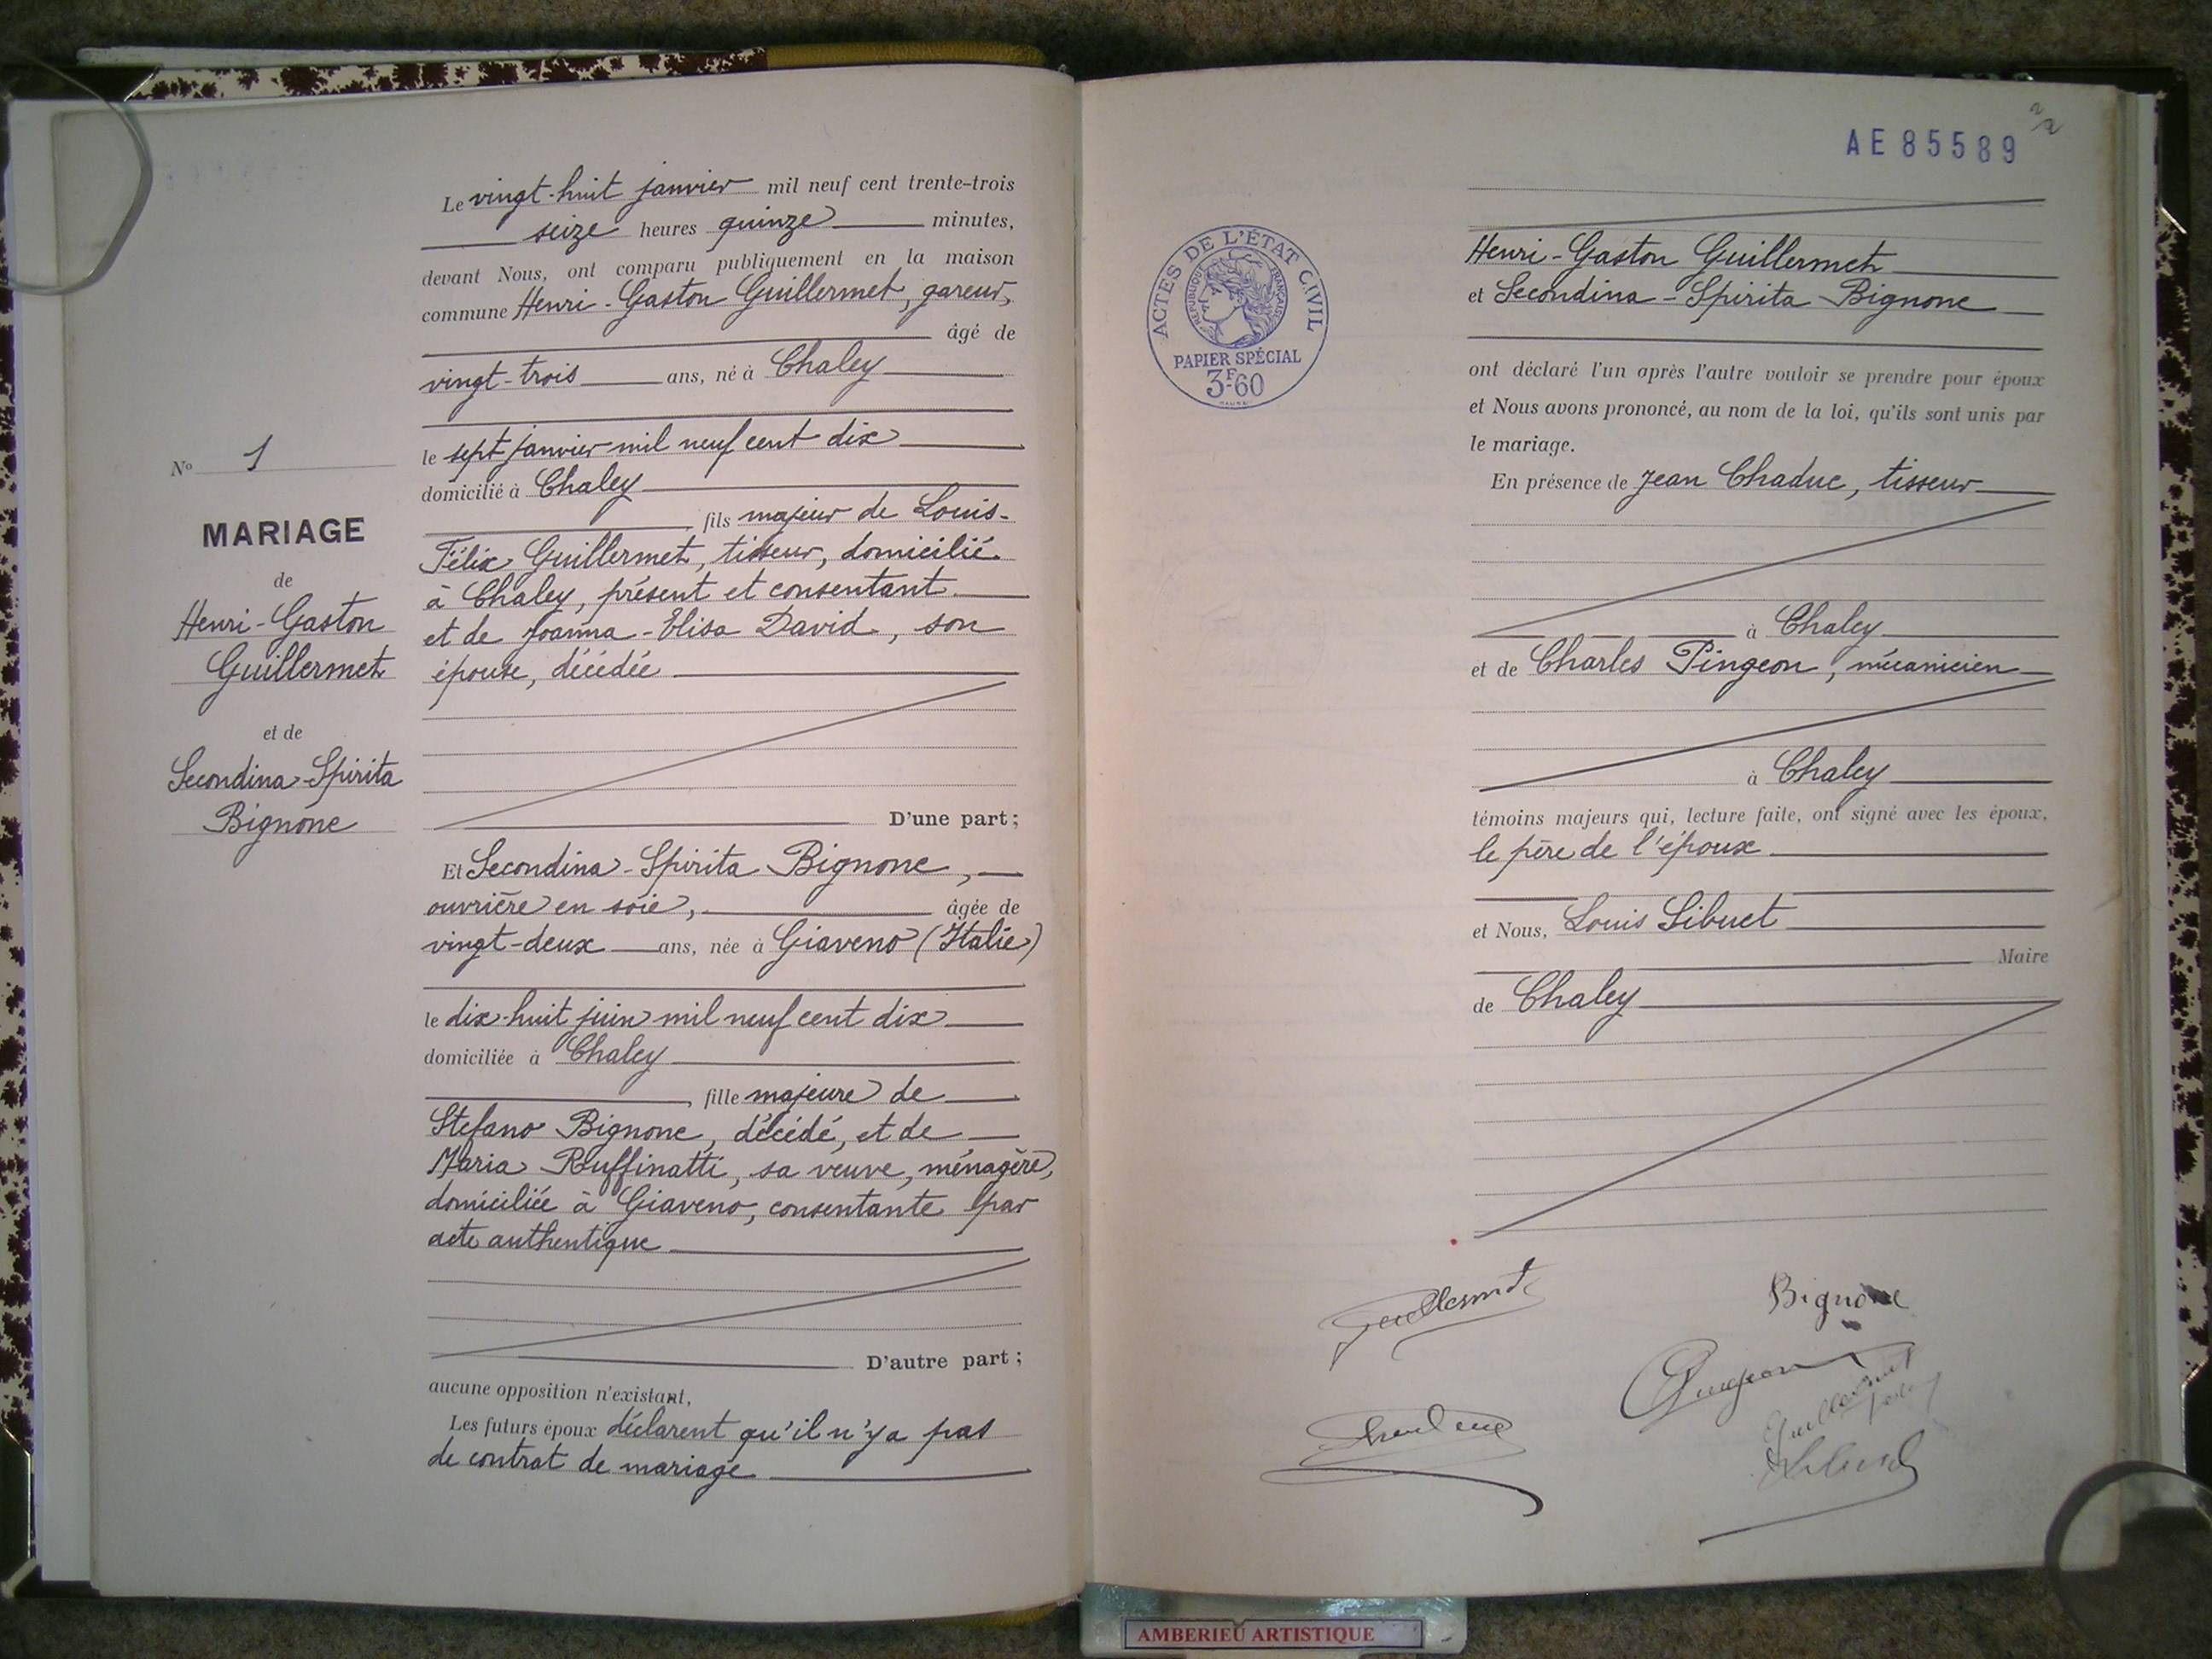 Le vingt-huit janvier mil neuf cent trente-trois
seize heures quinze minutes,
devant Nous, ont comparu publiquement en la maison
commune Henri-Gaston Guillermet, gareur,
âgé de
vingt-trois ans, né à Chaley
le sept janvier mil neuf cent dix
domicilié à Chaley
, fils majeur de Louis-
Félix Guillermet, tisseur, domicilié
à Chaley, présent et consentant
et de Joanna-Elisa David, son
épouse, décédée
D'une part;
Et Secondina-Spirita Bignone,
ouvrière en soie, âgée de
vingt-deux ans, née à Giaveno (Italie)
le dix-huit juin mil neuf cent dix
domiciliée à Chaley
, fille majeure de
Stefano Bignone, décédé, et de
Maria Ruffinatti, sa veuve, ménagère,
domiciliée à Giaveno, consentante par
acte authentique
D'autre part;
aucune opposition n'existant,
Les futurs époux déclarent qu'il n'y a pas
de contrat de mariage
No 1
MARIAGE
de
Henri-Gaston
Guillermet
et de
Secondina-Spirita
Bignone
AE 85589
2/2
ACTES DE L'ÉTAT CIVIL
RÉPUBLIQUE FRANÇAISE
PAPIER SPÉCIAL
3F60
Henri-Gaston Guillermet
et Secondina-Spirita Bignone
ont déclaré l'un après l'autre vouloir se prendre pour époux
et Nous avons prononcé, au nom de la loi, qu'ils sont unis par
le mariage.
En présence de Jean Chaduc, tisseur
à Chaley
et de Charles Pingeon, mécanicien
à Chaley
témoins majeurs qui, lecture faite, ont signé avec les époux,
le père de l'époux
et Nous, Louis Libuet
Maire
de Chaley
Guillermet
Bignone
Pingeon
Guillermet
Chaduc
Libuet
AMBERIEU ARTISTIQUE